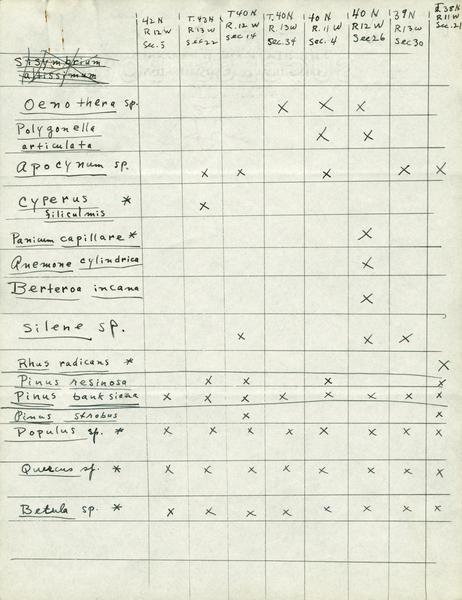 42 N T. 43N T 40N T. 40N 40 N 40 N 39 N T. 38N
R. 12 W R 13 W R. 12 W R. 13 W R. 11 W R 12 W R 13 W R 11 W
Sec. 5 sec 22 sec 14 Sec. 34 Sec. 4 Sec 26 Sec 30 Sec. 21
Sisymbrium
altissimum
Oenothera sp. X X X
Polygonella X X
articulata
Apocynum sp. X X X X X
Cyperus * X
filiculmis
Panicum capillare * X
Anemone cylindrica X
Berteroa incana X
Silene sp. X X X
Rhus radicans * X
Pinus resinosa X X X X
Pinus banksiana X X X X X X X X
Pinus strobus X X
Populus sp. * X X X X X X X X
Quercus sp. * X X X X X X X X
Betula sp. * X X X X X X X X